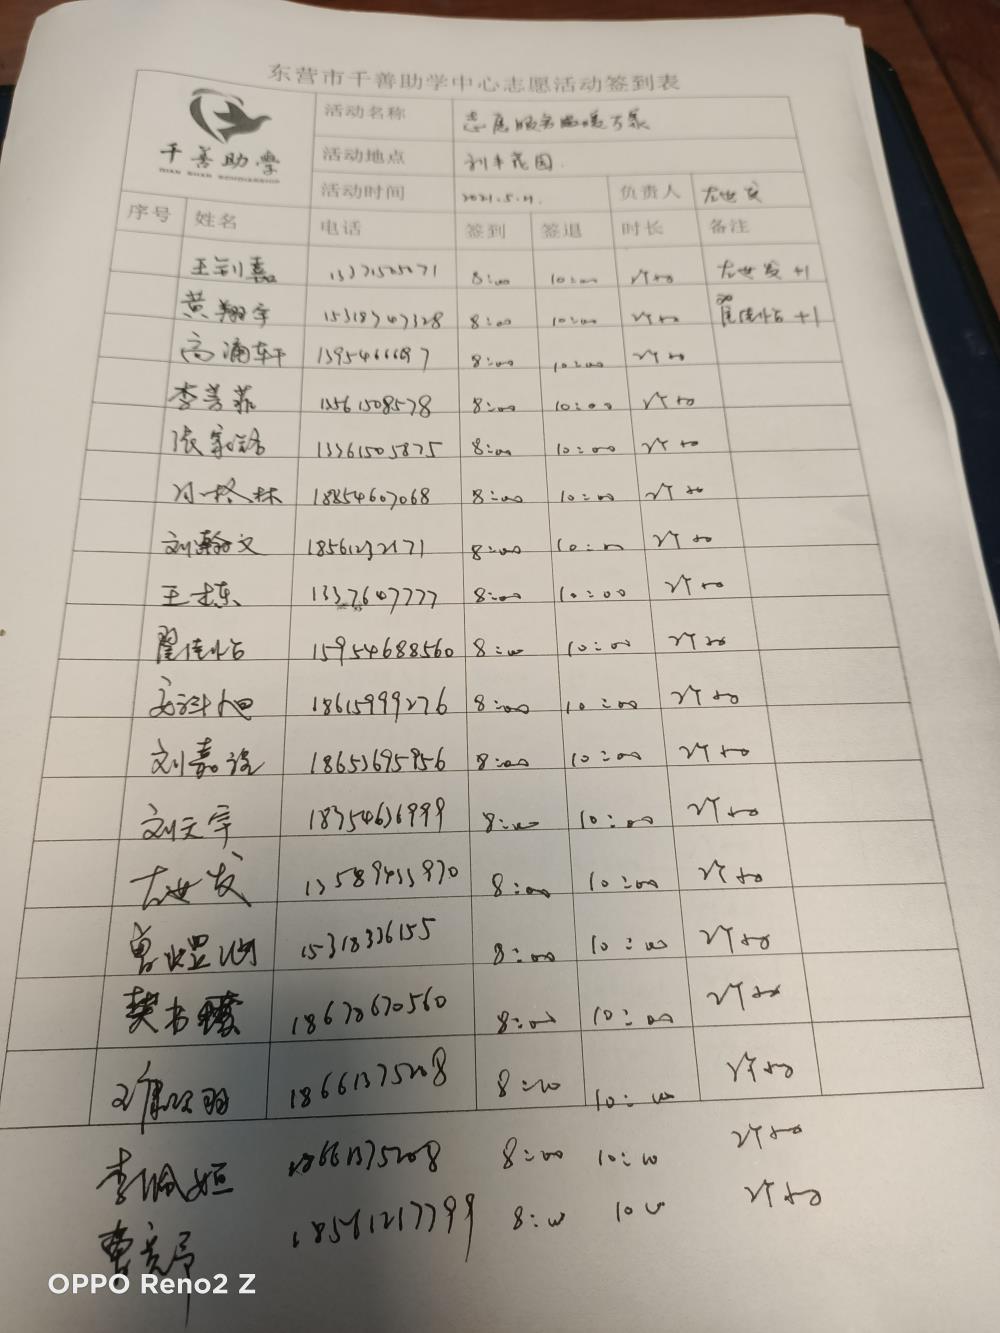 东营市千善助学中心志愿活动签到表
千善助学
活动名称 志愿服务 万家
活动地点 利丰花园
活动时间 2021.5.4. 负责人 左世发
序号 姓名 电话 签到 签退 时长 备注
王钊嘉 13371525071 8:00 10:00 2个+0 左世发+1
黄翔宇 15318747328 8:00 10:00 2个+0 翟佳怡+1
高浦轩 1395466697 8:00 10:00 2个+0
李善菲 13561508578 8:00 10:00 2个+0
张家铭 13361505875 8:00 10:00 2个+0
格林 18854607068 8:00 10:00 2个+0
刘瀚文 18561232171 8:00 10:00 2个+0
王栋 13376407777 8:00 10:00 2个+0
翟佳怡 15954688560 8:00 10:00 2个+0
18615999276 8:00 10:00 2个+0
刘嘉谊 18653695956 8:00 10:00 2个+0
刘天宇 18354636999 8:00 10:00 2个+0
左世发 13589455970 8:00 10:00 2个+0
15318336155 8:00 10:00 2个+0
樊书 18678670560 8:00 10:00 2个+0
18661375208 8:00 10:00 2个+0
李 18661375208 8:00 10:00 2个+0
18561217799 8:00 10:00 2个+0
OPPO Reno2 Z